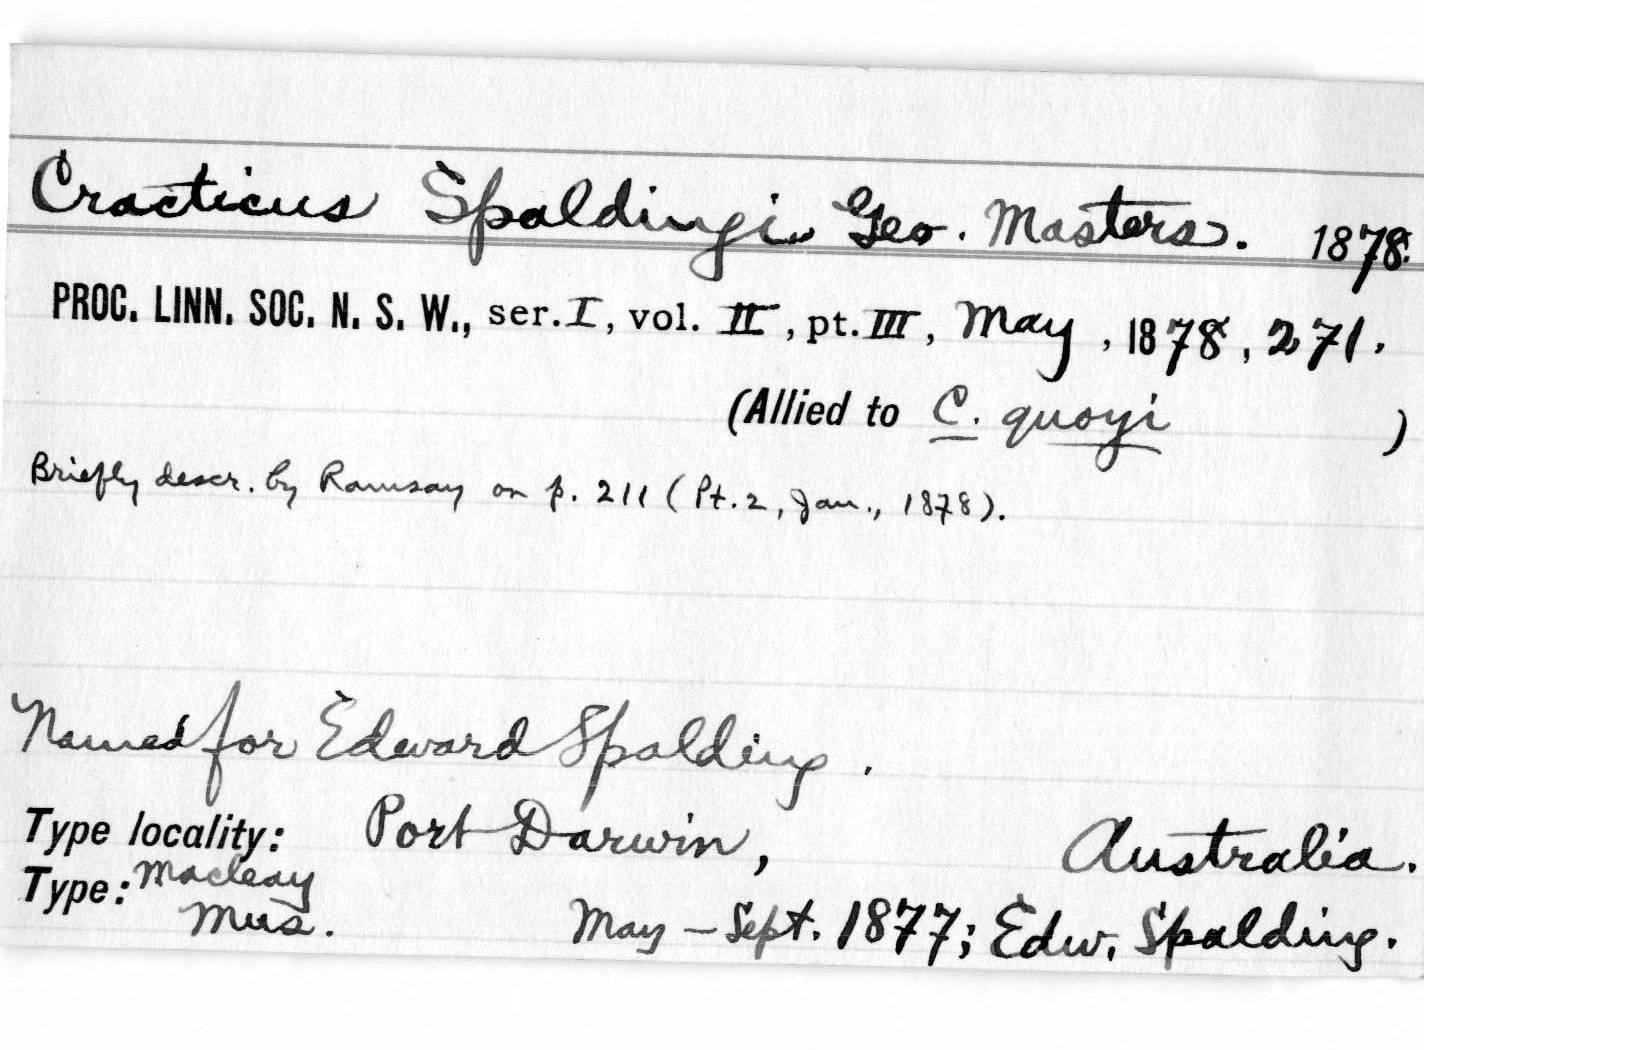 Cracticus Spaldingi. Geo. Masters. 1878.
PROC. LINN. SOC. N. S. W., ser. I, vol. II, pt. III, May, 1878, 271.
(Allied to C. quoyi )
Briefly descr. by Ramsay on p. 211 (Pt. 2, Jan., 1878).
Named for Edward Spalding.
Type locality: Port Darwin, Australia.
Type: Macleay
Mus. May - Sept. 1877; Edw. Spalding.